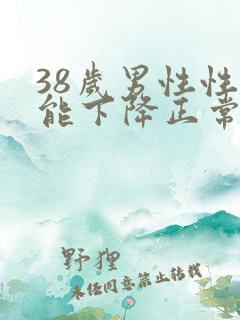 38歲男性性
能下降正常
野狸
未经同意禁止转载